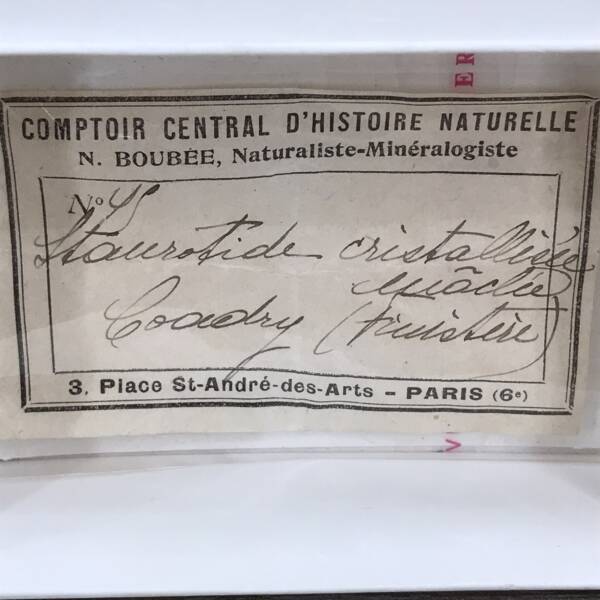 COMPTOIR CENTRAL D'HISTOIRE NATURELLE
N. BOUBÉE, Naturaliste-Minéralogiste
No 45
Staurotide cristallisée
mâclée
Coadry (Finistère)
3, Place St-André-des-Arts - PARIS (6e)
ER